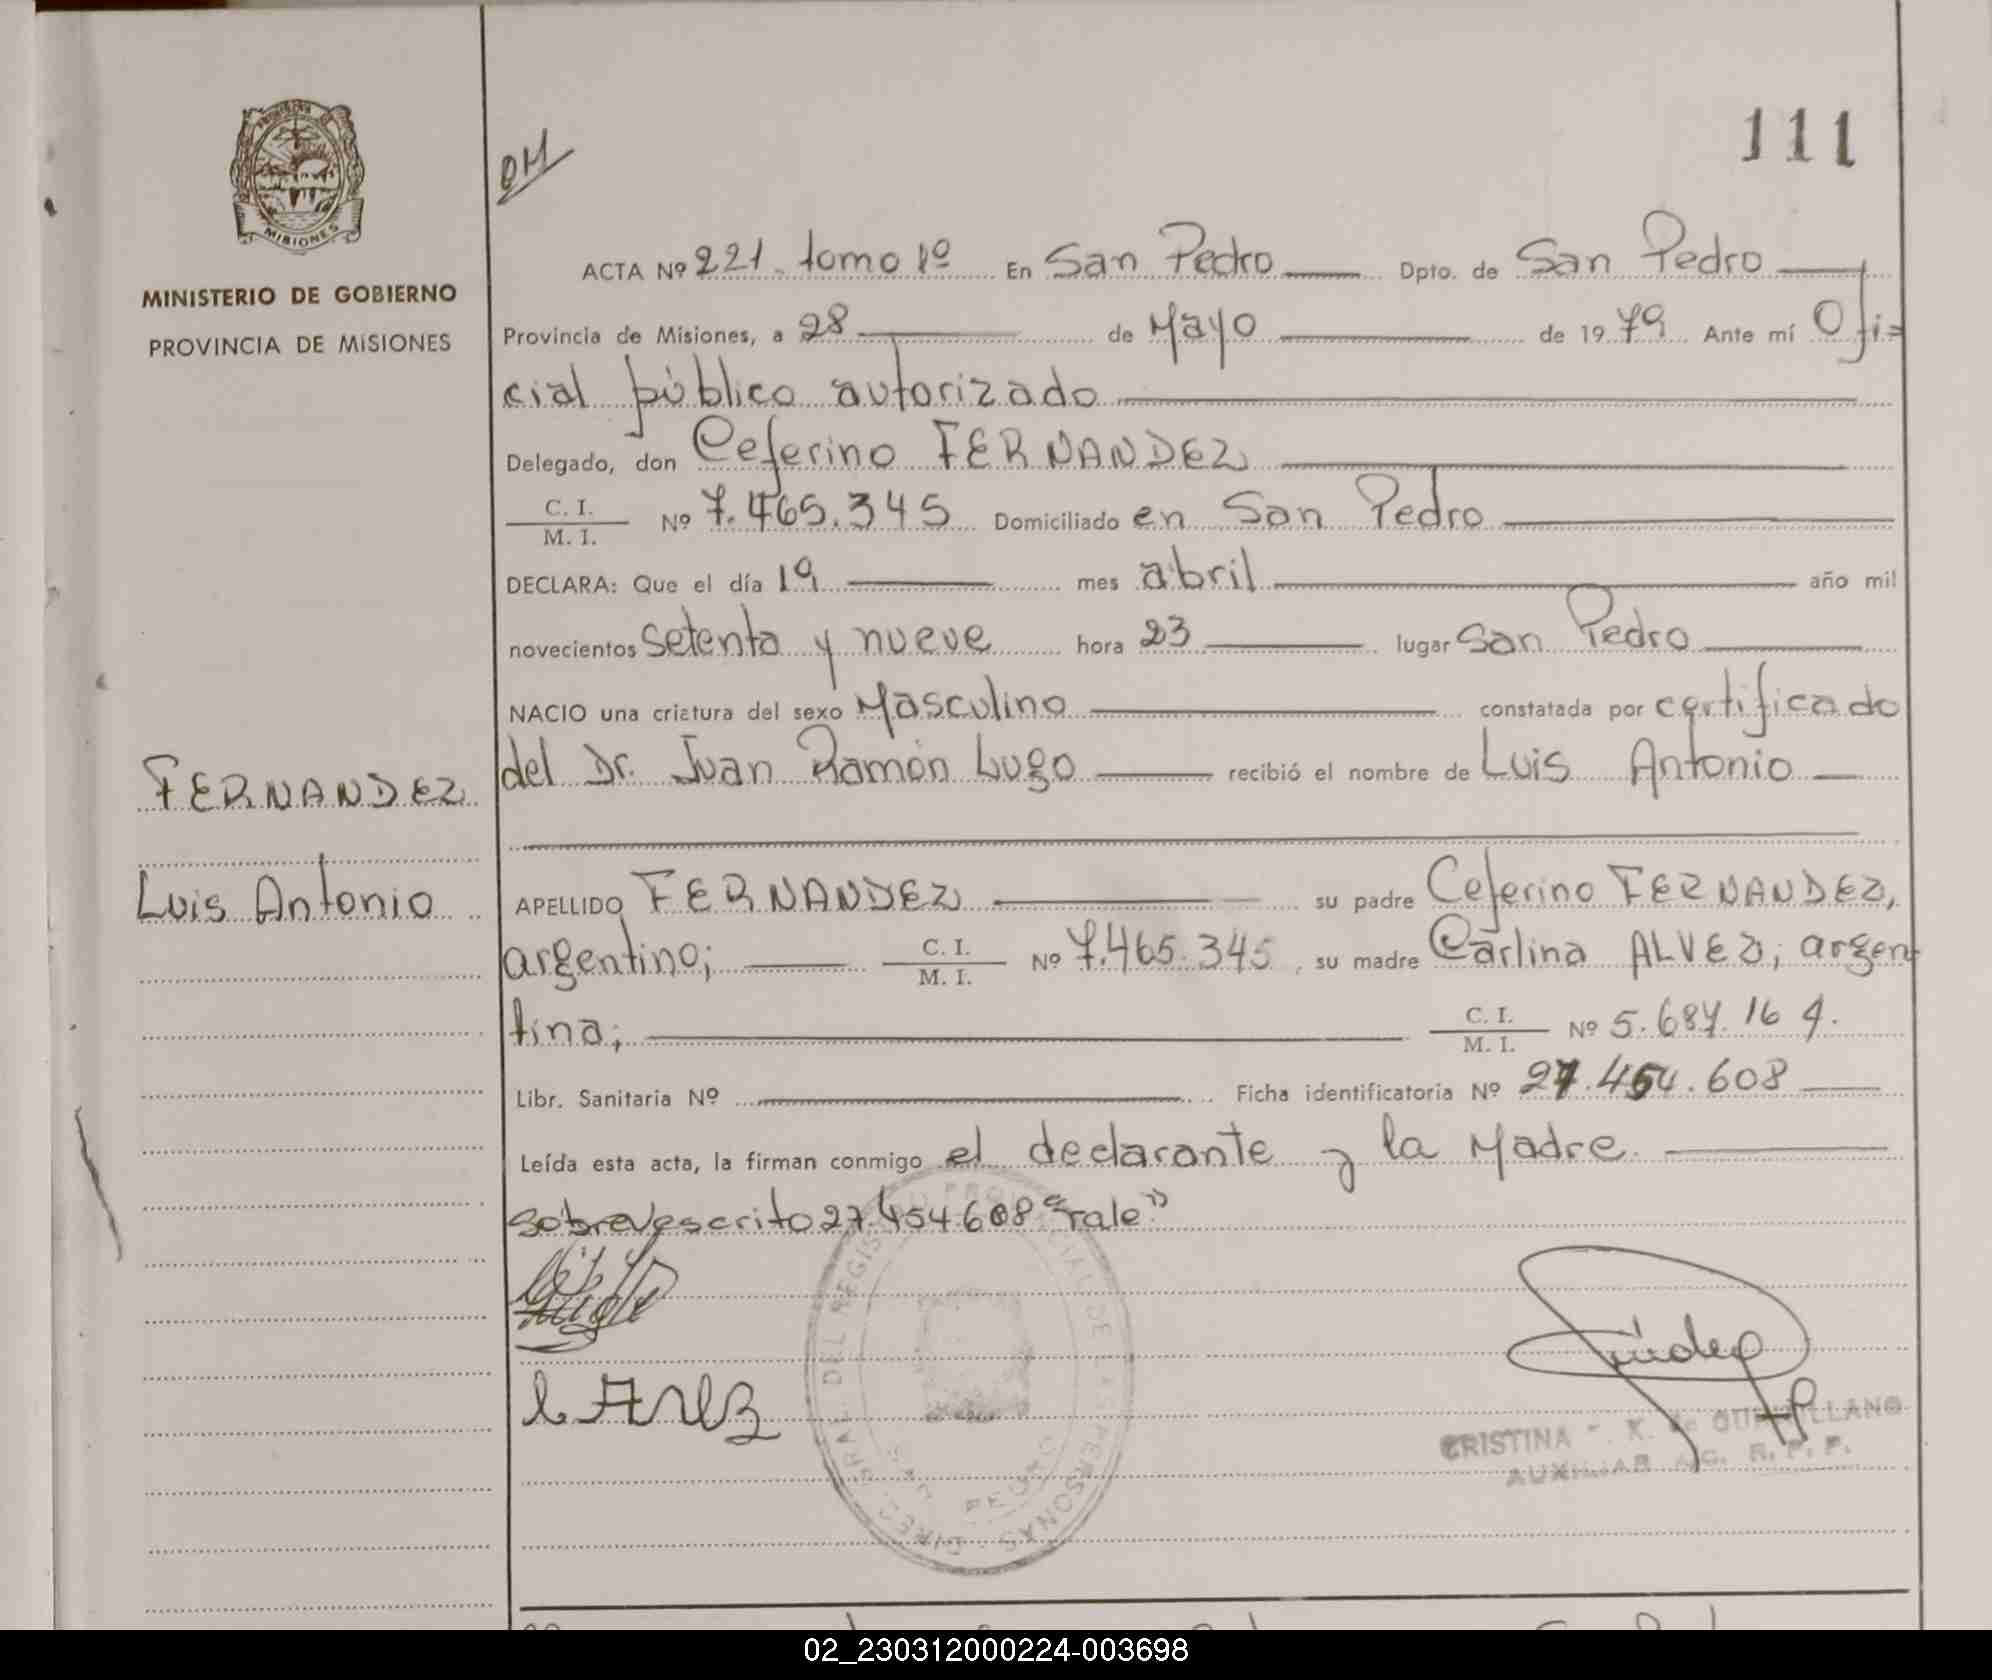 111
OM
MISIONES
MINISTERIO DE GOBIERNO
PROVINCIA DE MISIONES
FERNANDEZ
Luis Antonio
ACTA Nº 221 tomo 1º En San Pedro Dpto. de San Pedro
Provincia de Misiones, a 28 de Mayo de 1979 Ante mí Ofi=
cial público autorizado
Delegado, don Ceferino FERNANDEZ
C. I. / M. I. Nº 7.465.345 Domiciliado en San Pedro
DECLARA: Que el día 19 mes abril año mil
novecientos setenta y nueve hora 23 lugar San Pedro
NACIO una criatura del sexo Masculino constatada por certificado
del Dr. Juan Ramón Lugo recibió el nombre de Luis Antonio
APELLIDO FERNANDEZ su padre Ceferino FERNANDEZ,
argentino; C. I. / M. I. Nº 7.465.345, su madre Carlina ALVEZ; argen
tina; C. I. / M. I. Nº 5.687.164.
Libr. Sanitaria Nº Ficha identificatoria Nº 27.454.608
Leída esta acta, la firman conmigo el declarante y la Madre
sobrevescrito 27.454.608 "vale"
DIREC. GRAL. DEL REGISTRO PROVINCIAL DE LAS PERSONAS
SAN PEDRO
CRISTINA K. de
AUXILIAR R. P. P.
02_230312000224-003698